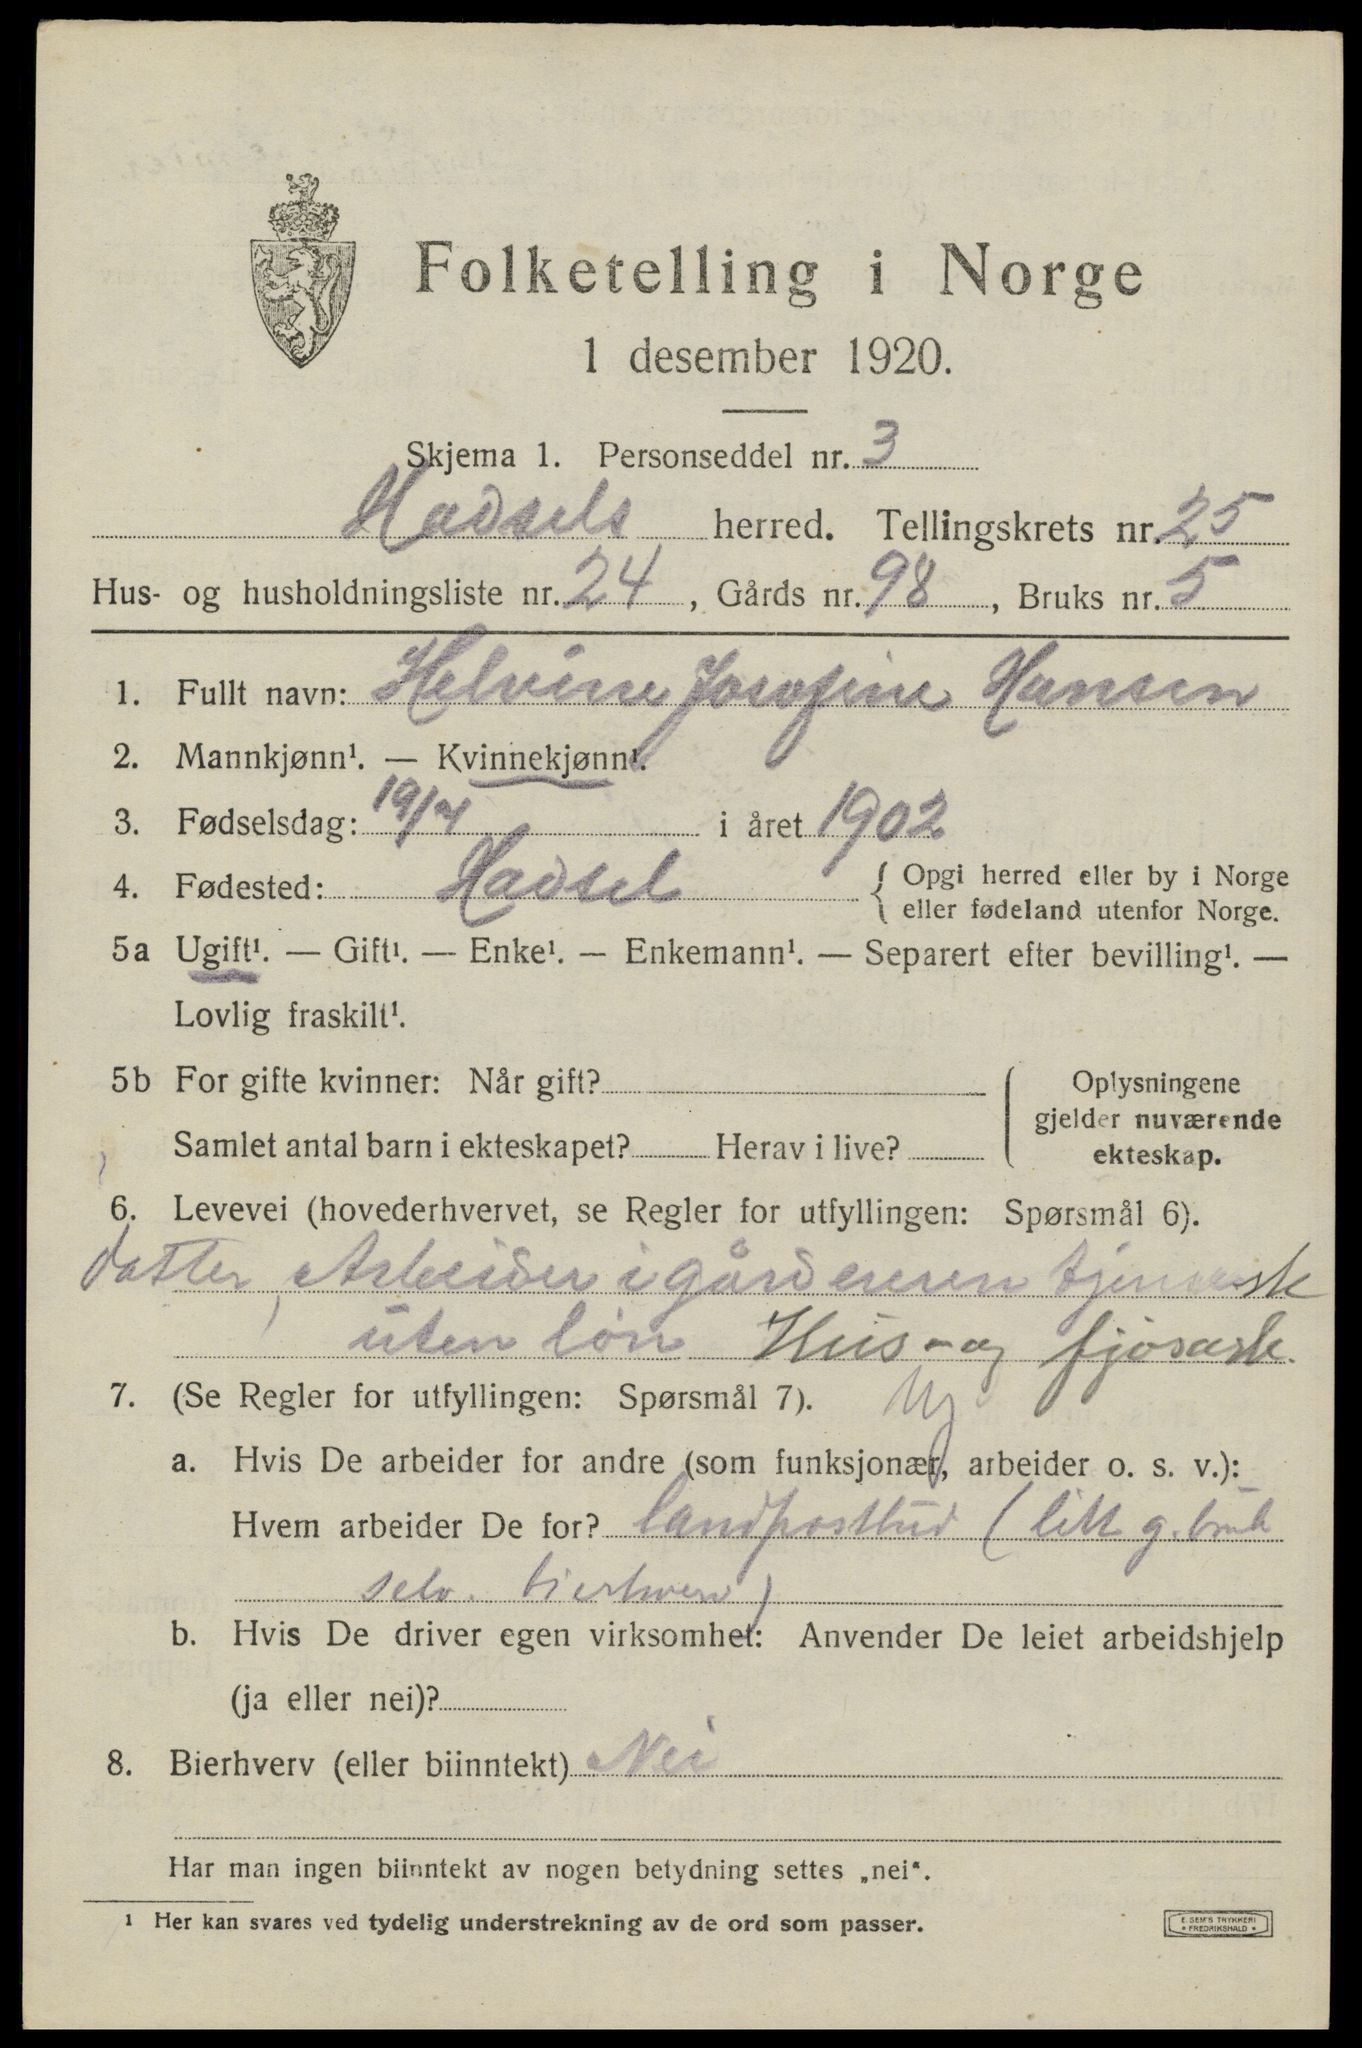 Folketelling i Norge
1 desember 1920.
Skjema 1. Personseddel nr. 3
Hadsels herred. Tellingskrets nr. 25
Hus- og husholdningsliste nr. 24, Gårds nr. 98, Bruks nr. 5
1. Fullt navn: Helvine Josefine Hansen
2. Mannkjønn¹. — Kvinnekjønn¹.
3. Fødselsdag: 19/7 i året 1902
4. Fødested: Hadsel { Opgi herred eller by i Norge
eller fødeland utenfor Norge.
5a Ugift¹. — Gift¹. — Enke¹. — Enkemann¹. — Separert efter bevilling¹. —
Lovlig fraskilt¹.
5b For gifte kvinner: Når gift?
Samlet antal barn i ekteskapet? Herav i live?
Oplysningene
gjelder nuværende
ekteskap.
6. Levevei (hovederhvervet, se Regler for utfyllingen: Spørsmål 6).
datter, Arbeider i gård
uten løn Hus- og fjøsarb.
7. (Se Regler for utfyllingen: Spørsmål 7).
a. Hvis De arbeider for andre (som funksjonær, arbeider o. s. v.):
Hvem arbeider De for? landpostbud (litt g.bruk
selv. bierhverv)
b. Hvis De driver egen virksomhet: Anvender De leiet arbeidshjelp
(ja eller nei)?
8. Bierhverv (eller biinntekt) Nei
Har man ingen biinntekt av nogen betydning settes „nei“.
¹ Her kan svares ved tydelig understrekning av de ord som passer.
E. SEM'S TRYKKERI
FREDRIKSHALD